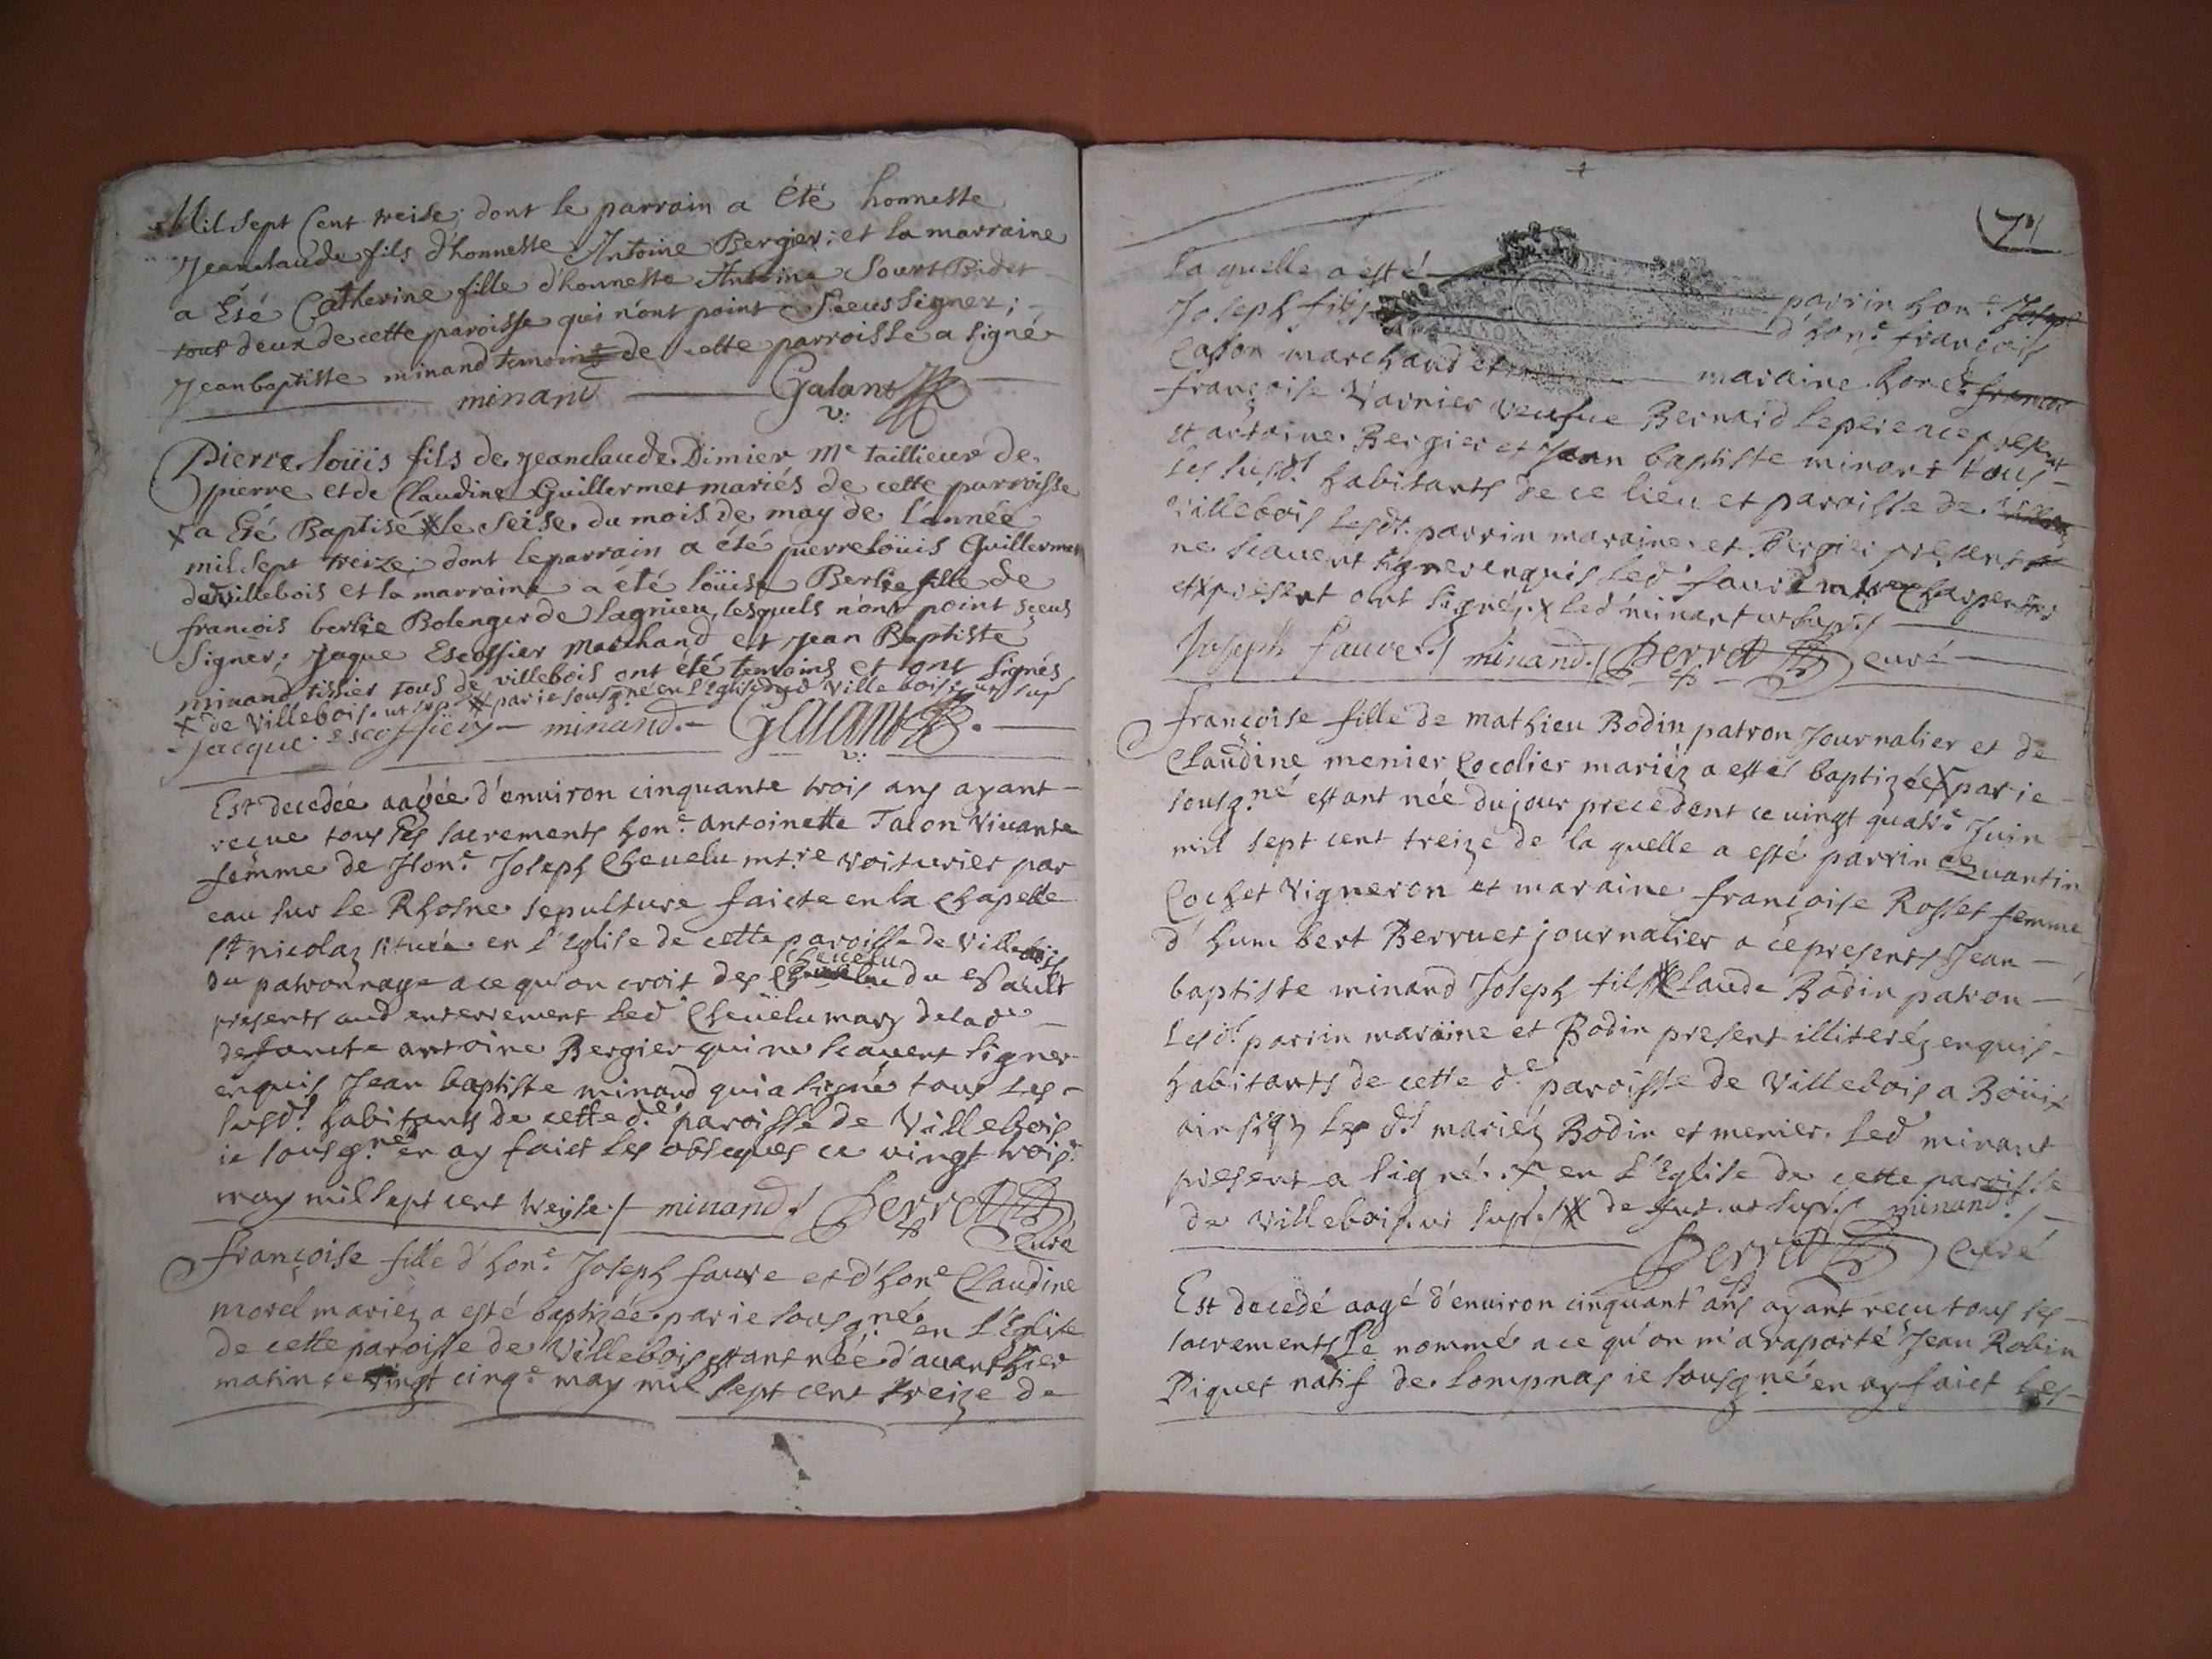 Mil sept Cent treise; dont le parrain a été honneste
Jeanclaude fils d'honneste Antoine Bergier; et la marraine
a Esé Catherine fille d'honneste Antoine Sourt Bidet
tous deux de cette paroisse qui n'ont point sceus signer;
Jeanbaptiste minand temoins de cette parroisse a signé
minand Galant
Pierre loüis fils de Jeanclaude Dimier Me taillieur de
pierre et de Claudine Guillermet mariés de cette parroisse
x a Eté Baptisé x le seise du mois de may de l'année
mil sept treize; dont le parrain a été pierre loüis Guillermet
de villebois et la marraine a été loüise Berlie fille de
françois berlie Bolenger de lagnieu, lesquels n'ont point sceus
signer; Jaque Escoffier marchand et Jean Baptiste
minand tissier tous de villebois ont été temoins et ont signés
x de Villebois. ut sup. x par ie sousgné en l'Eglise dud villebois ut sup
Jacque escoffier minand. Galant
Est decedée aagée d'enuiron cinquante trois ans ayant
reçue tous ses sacrements hone. antoinette Talon Viuante
femme de Hone. Joseph Cheuelu mtre voiturier par
eau sur le Rhosne sepulture faicte en la chapelle
St nicolaz située en l'Eglise de cette paroisse de Villebois
du patronnage a ce qu'on croit des Cheuelu du Sault
presents aud enterrement led Cheuelu mary de lade
defuncte antoine Bergier qui ne scauent signer
enquis Jean baptiste minand qui a signé tous les
susdt. habitants de cette de. paroisse de Villebois
ie sousgné en ay faict les obseques ce vingt trois
may mil sept cent treyse./ minand./ Perret
Curé
françoise fille d'hone. Joseph faure et d'hone Claudine
morel mariéz a esté baptizée par ie sousgné. en l'Eglise
de cette paroisse de Villebois estant née d'auanthier
matin ce vingt cinqe may mil sept cent treize de
71
la quelle a esté parrin hone Joseph
Joseph fils d'hone françois
Casson marchand et maraine hone francoi
françoise Varnier veufue Bernard le pere a ce present
et antoine Bergier et Jean baptiste minant tous
les susdt. habitants de ce lieu et paroisse de
villebois lesdt. parrin maraine et Bergier present
ne scauent signer enquis led faure mtre charpentier
et x present ont signéz. x led minant ut sup./
Joseph faure./ minand./ Perret curé
françoise fille de mathieu Bodin patron Journalier et de
Claudine menier Cocolier mariéz a esté baptizée x par ie
sousgné estant née du jour precedent ce uingt quatre Juin
mil sept cent treize de la quelle a esté parrin quantin
Cochet Vigneron et maraine françoise Rosset femme
d'humbert Berruet journalier a ce presents Jean
baptiste minand Joseph fils x Claude Bodin patron
lesdt parrin maraine et Bodin present illiteréz enquis
habitants de cette de paroisse de Villebois a Boüix
ainsi q les dt mariéz Bodin et menier. led minant
present a signé. x en l'Eglise de cette paroisse
de villebois. ut sup./ x de fut. ut sup./ minand./
Perret Curé
Est decedé aagé d'enuiron cinquant' ans ayant recu tous ses
sacrements le nommé a ce qu'on m'a raporté Jean Robin
Piquet natif de lompnas ie sousgné en ay faict les